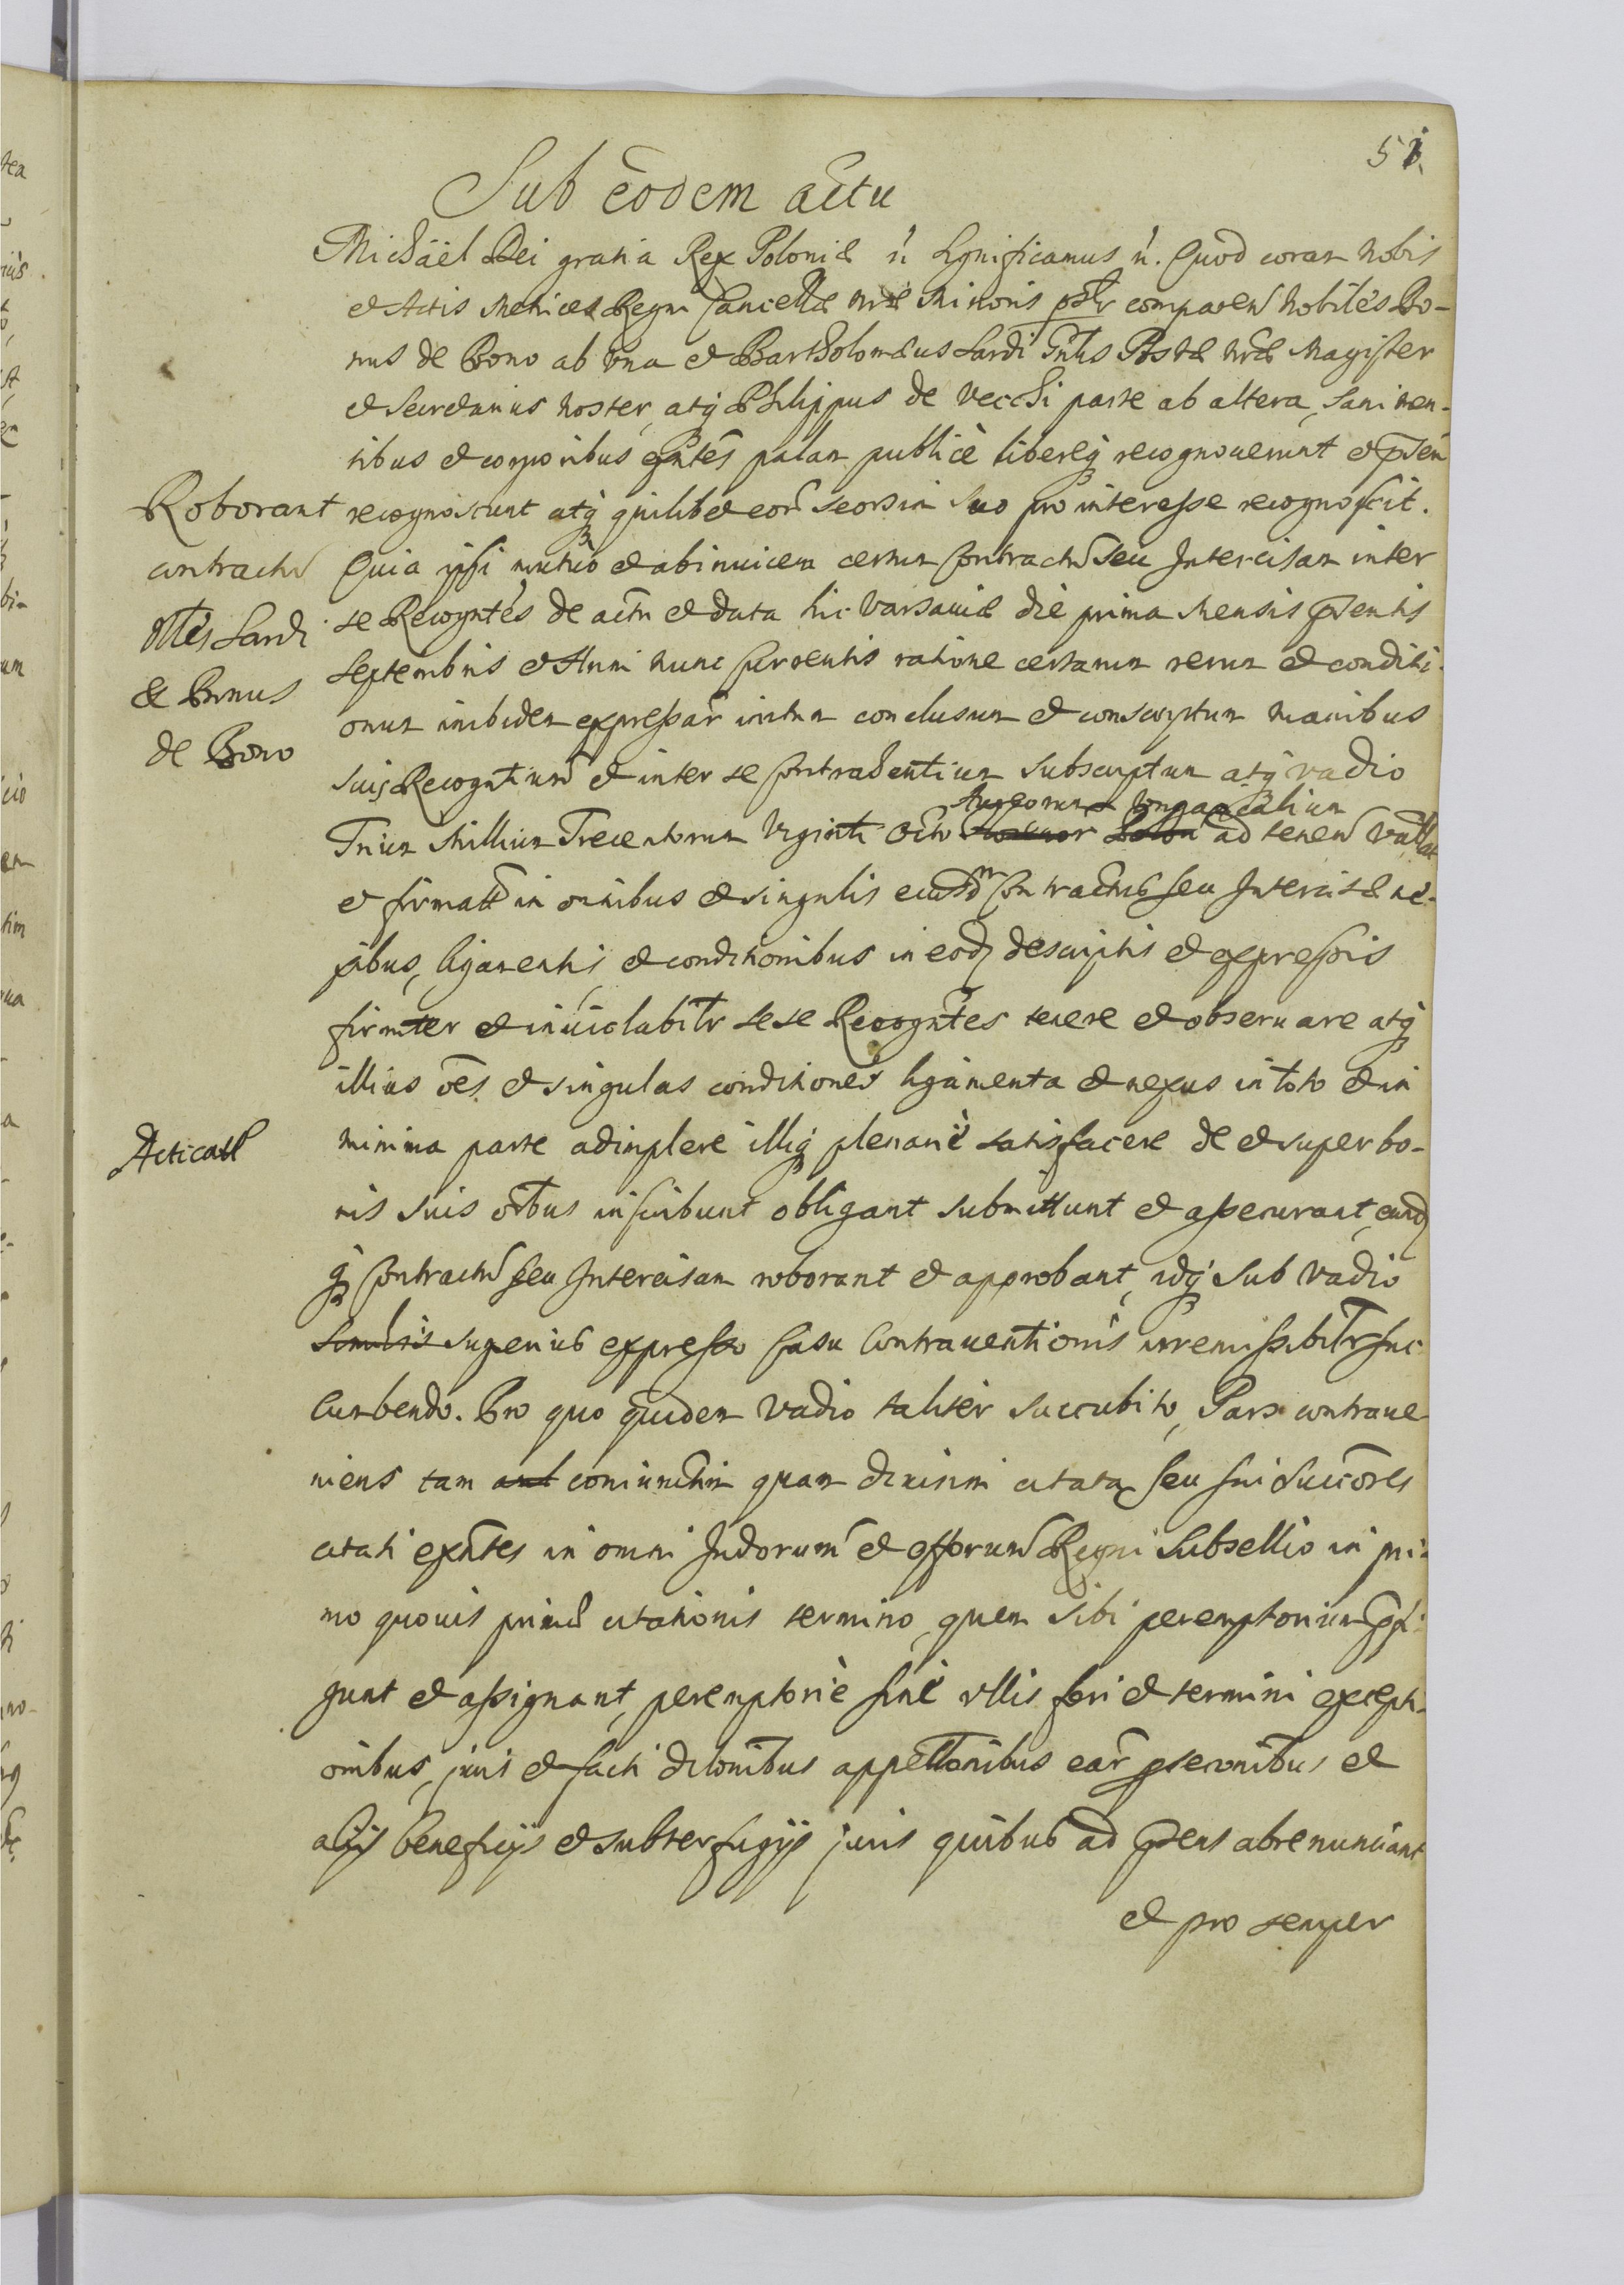 51
Sub eodem actu
Michaël Dei gratia Rex Poloniæ ń significamus ń. Quod coram Nobis
et Actis Metrices Regni Cancellæ nræ Minoris psltr comparen Nobiles Bo-
nus de Bono ab una et Bartholomæus Sardi Gnlis Postæ nræ Magister
et Secretarius Noster, atq Philippus de Vecchi parte ab altera, sani men-
tibus et corporibus exntes palam publicè libereq recognouerunt et pñ
Roborant
contractu
Nbles Sardi
& Bonus
de Bono
recognoscunt atq quilibet eor seorsim suo pro interesse recognoscit.
Quia ipsi mutuò et abinuicem certum Contractu seu Intercisam inter
se Recogntes de actu et data hic Varsauiæ die prima Mensis pñtis
Septembris et Anni nunc currentis ratione certarum rerum et conditi-
onum inibidem expressar initum conclusum et conscriptum manibus
suis Recogntium et inter se Contrahentium subscriptum atq vadio
Aureorum Vngaricalium
Trium Millium Trecentorum Viginti Octo ad tenen vall
et firmatt in omnibus et singulis eiusdm Contractus seu Intercisæ ne-
xibus, ligamentis et conditionibus in eod descriptis et expressis
firmiter et inuiolabiltr sese Recogntes tenere et obseruare atq
illius oes et singulas conditiones ligamenta et nexus in toto et in
Acticatt
minima parte adimplere illiq plenariè satisfacere de et super bo-
nis suis oibus inscribunt obligant submittunt et assecurant, eund
q Contractu seu Intercisam roborant et approbant, idq sub vadio
superius expresso Casu Contrauentionis irremissibiltr suc-
cumbendo. Pro quo quidem vadio taliter succubito, Pars contraue-
niens tam coniunctim quam diuisim citata seu sui Succores
citati exntes in omni Judiorum et offorum Regni Subsellio in pri-
mo quouis primæ citationis termino, quem sibi peremptorium pfi-
gunt et assignant, peremptoriè sine vllis fori et termini excepti-
onibus, juris et facti dilonibus appellonibus ear pseconibus et
alijs beneficijs et subterfugijs juris quibus ad pñs abrenunciant
et pro semper